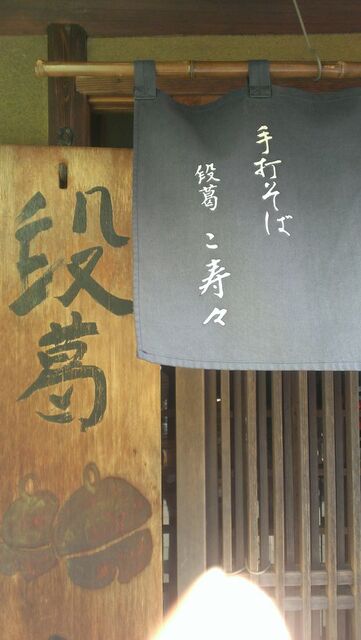 手打そば
段葛 こ寿々
段葛